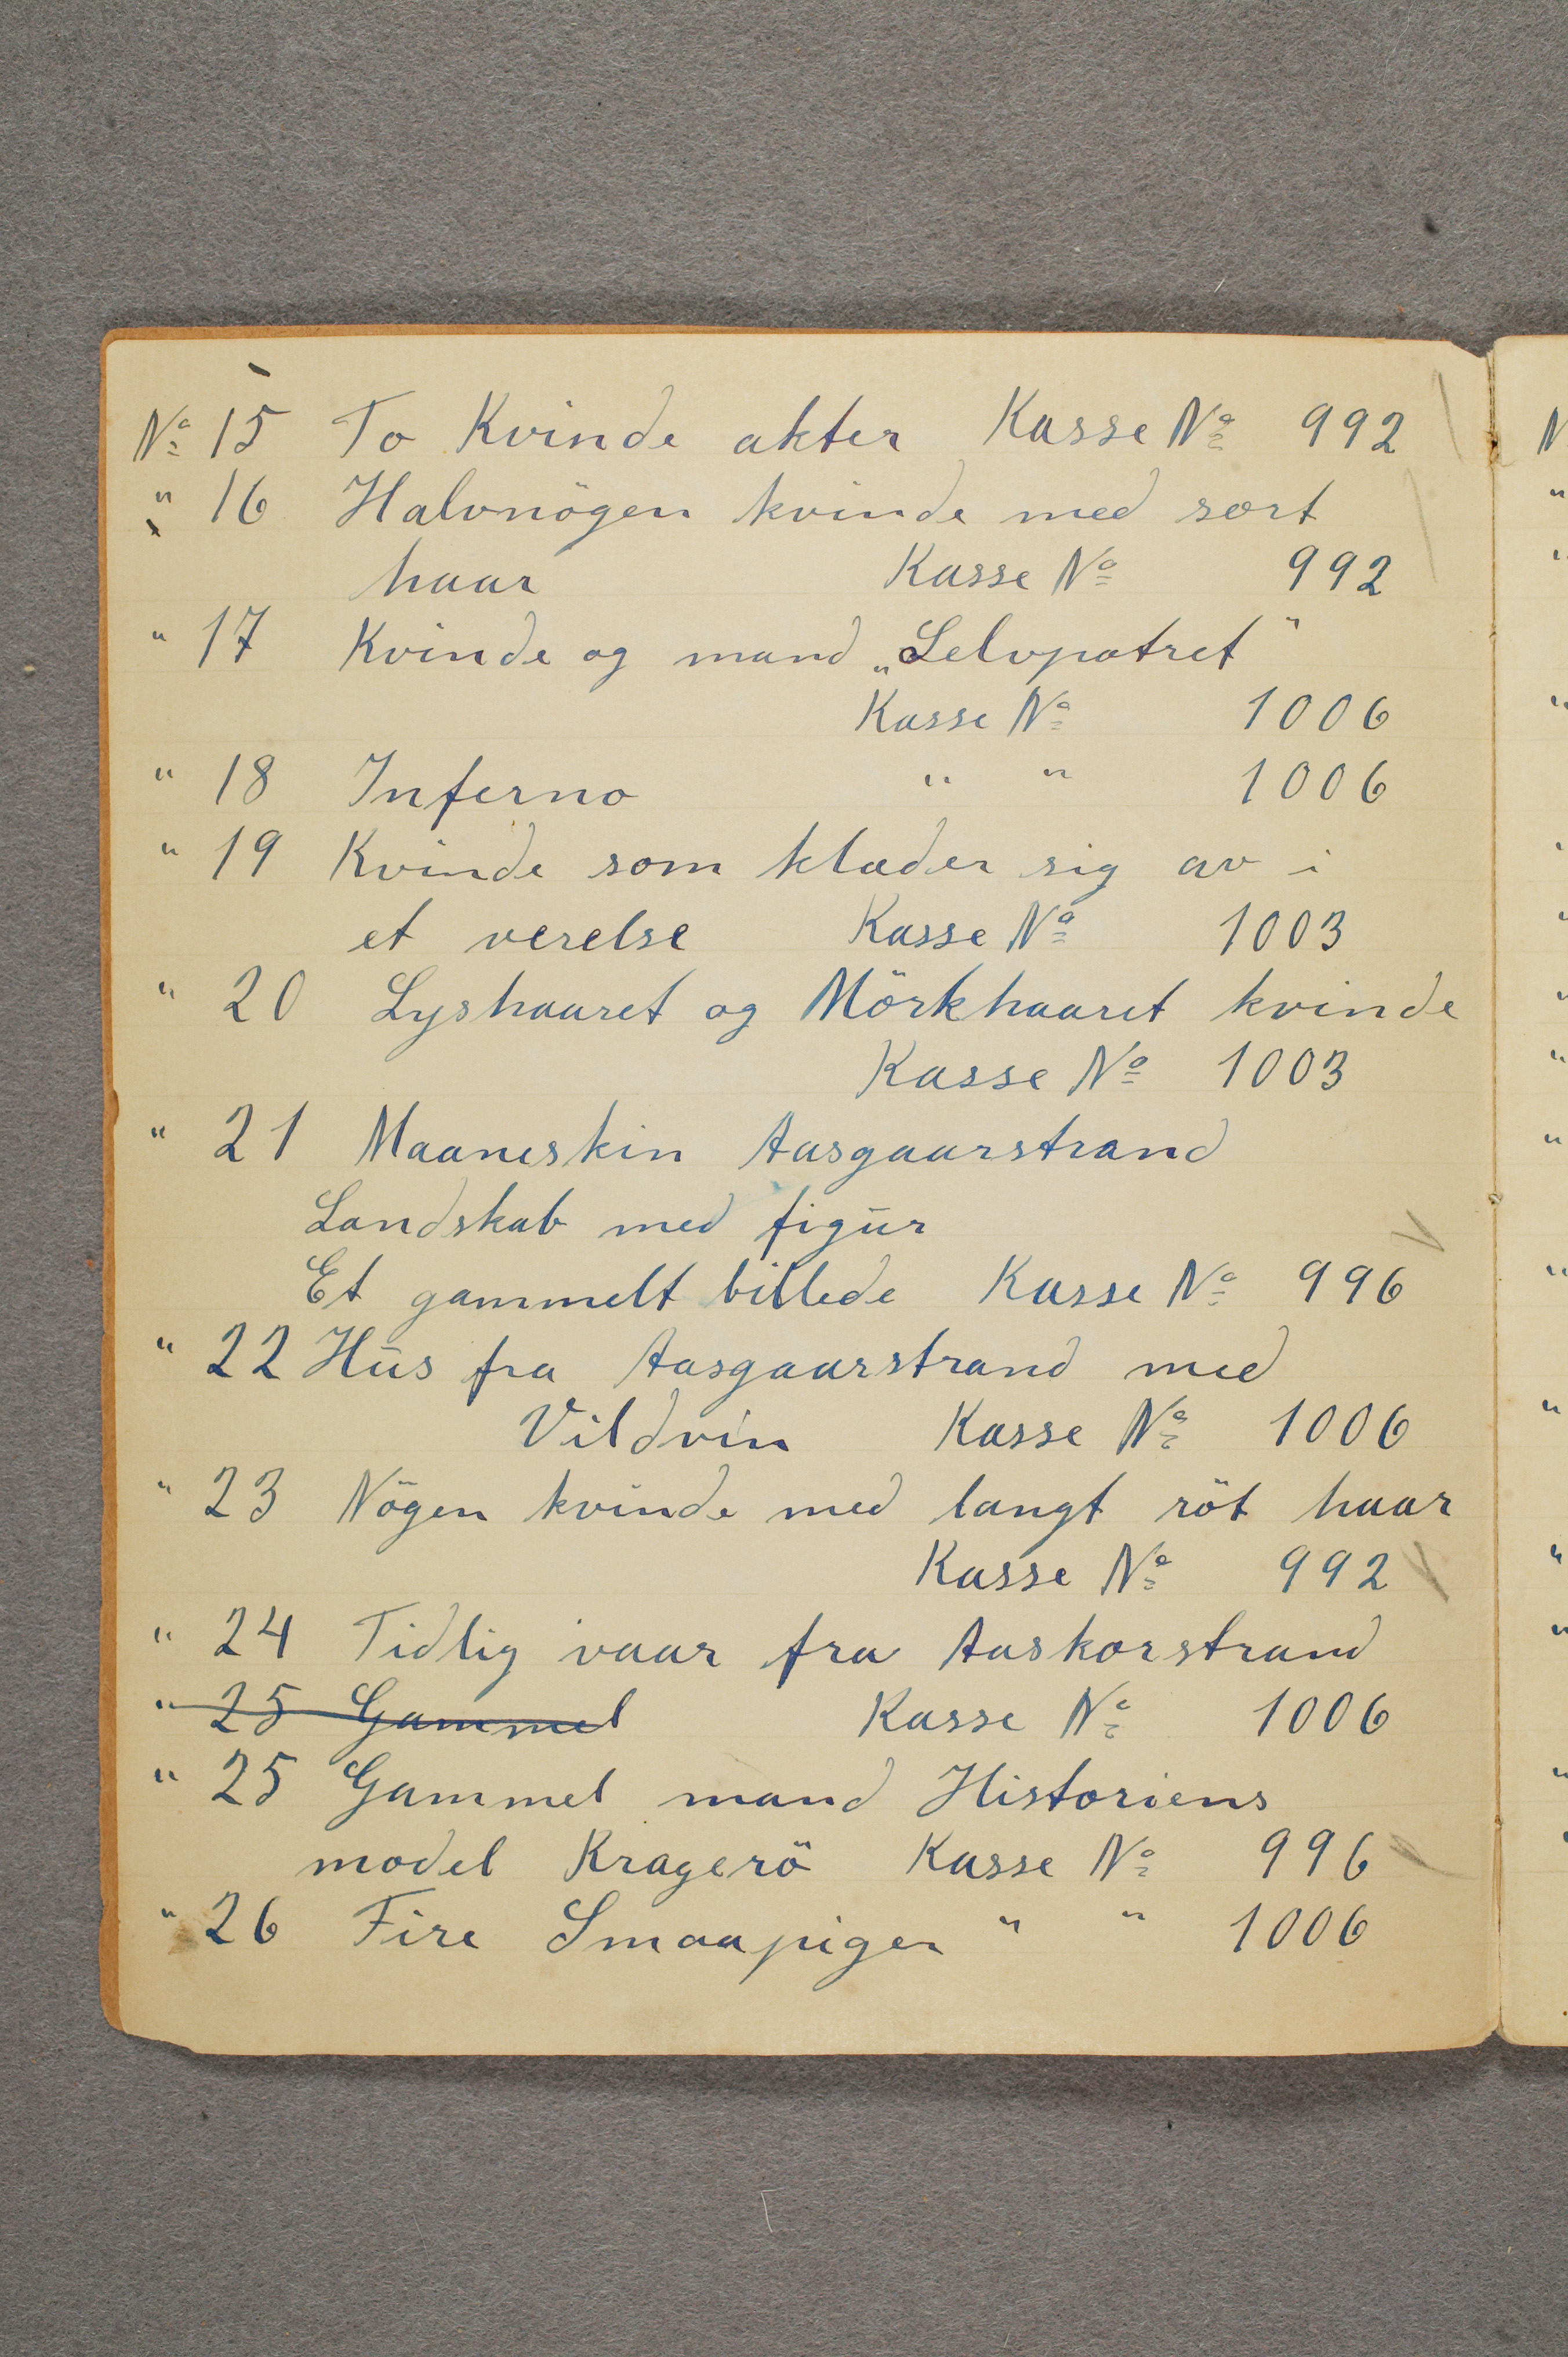 Nº 15 To Kvinde akter Kasse Nº 992
" 16 Halvnögen kvinde med sort
haar Kasse Nº 992
" 17 Kvinde og mand „Selvpotret"
Kasse Nº 1006
" 18 Inferno " " 1006
" 19 Kvinde som klæder sig av i
et verelse Kasse Nº 1003
" 20 Lyshaaret og Mörkhaaret kvinde
Kasse Nº 1003
" 21 Maaneskin Aasgaarstrand
Landskab med figūr
Et gammelt billede Kasse Nº 996
" 22 Hūs fra Aasgaarstrand med
Vildvin Kasse Nº 1006
" 23 Nögen kvinde med langt röt haar
Kasse Nº 992
" 24 Tidlig vaar fra Aaskorstrand
" 25 Gammel Kasse Nº 1006
" 25 Gammel mand Historiens
model Kragerö Kasse Nº 996
" 26 Fire Smaapiger " " 1006